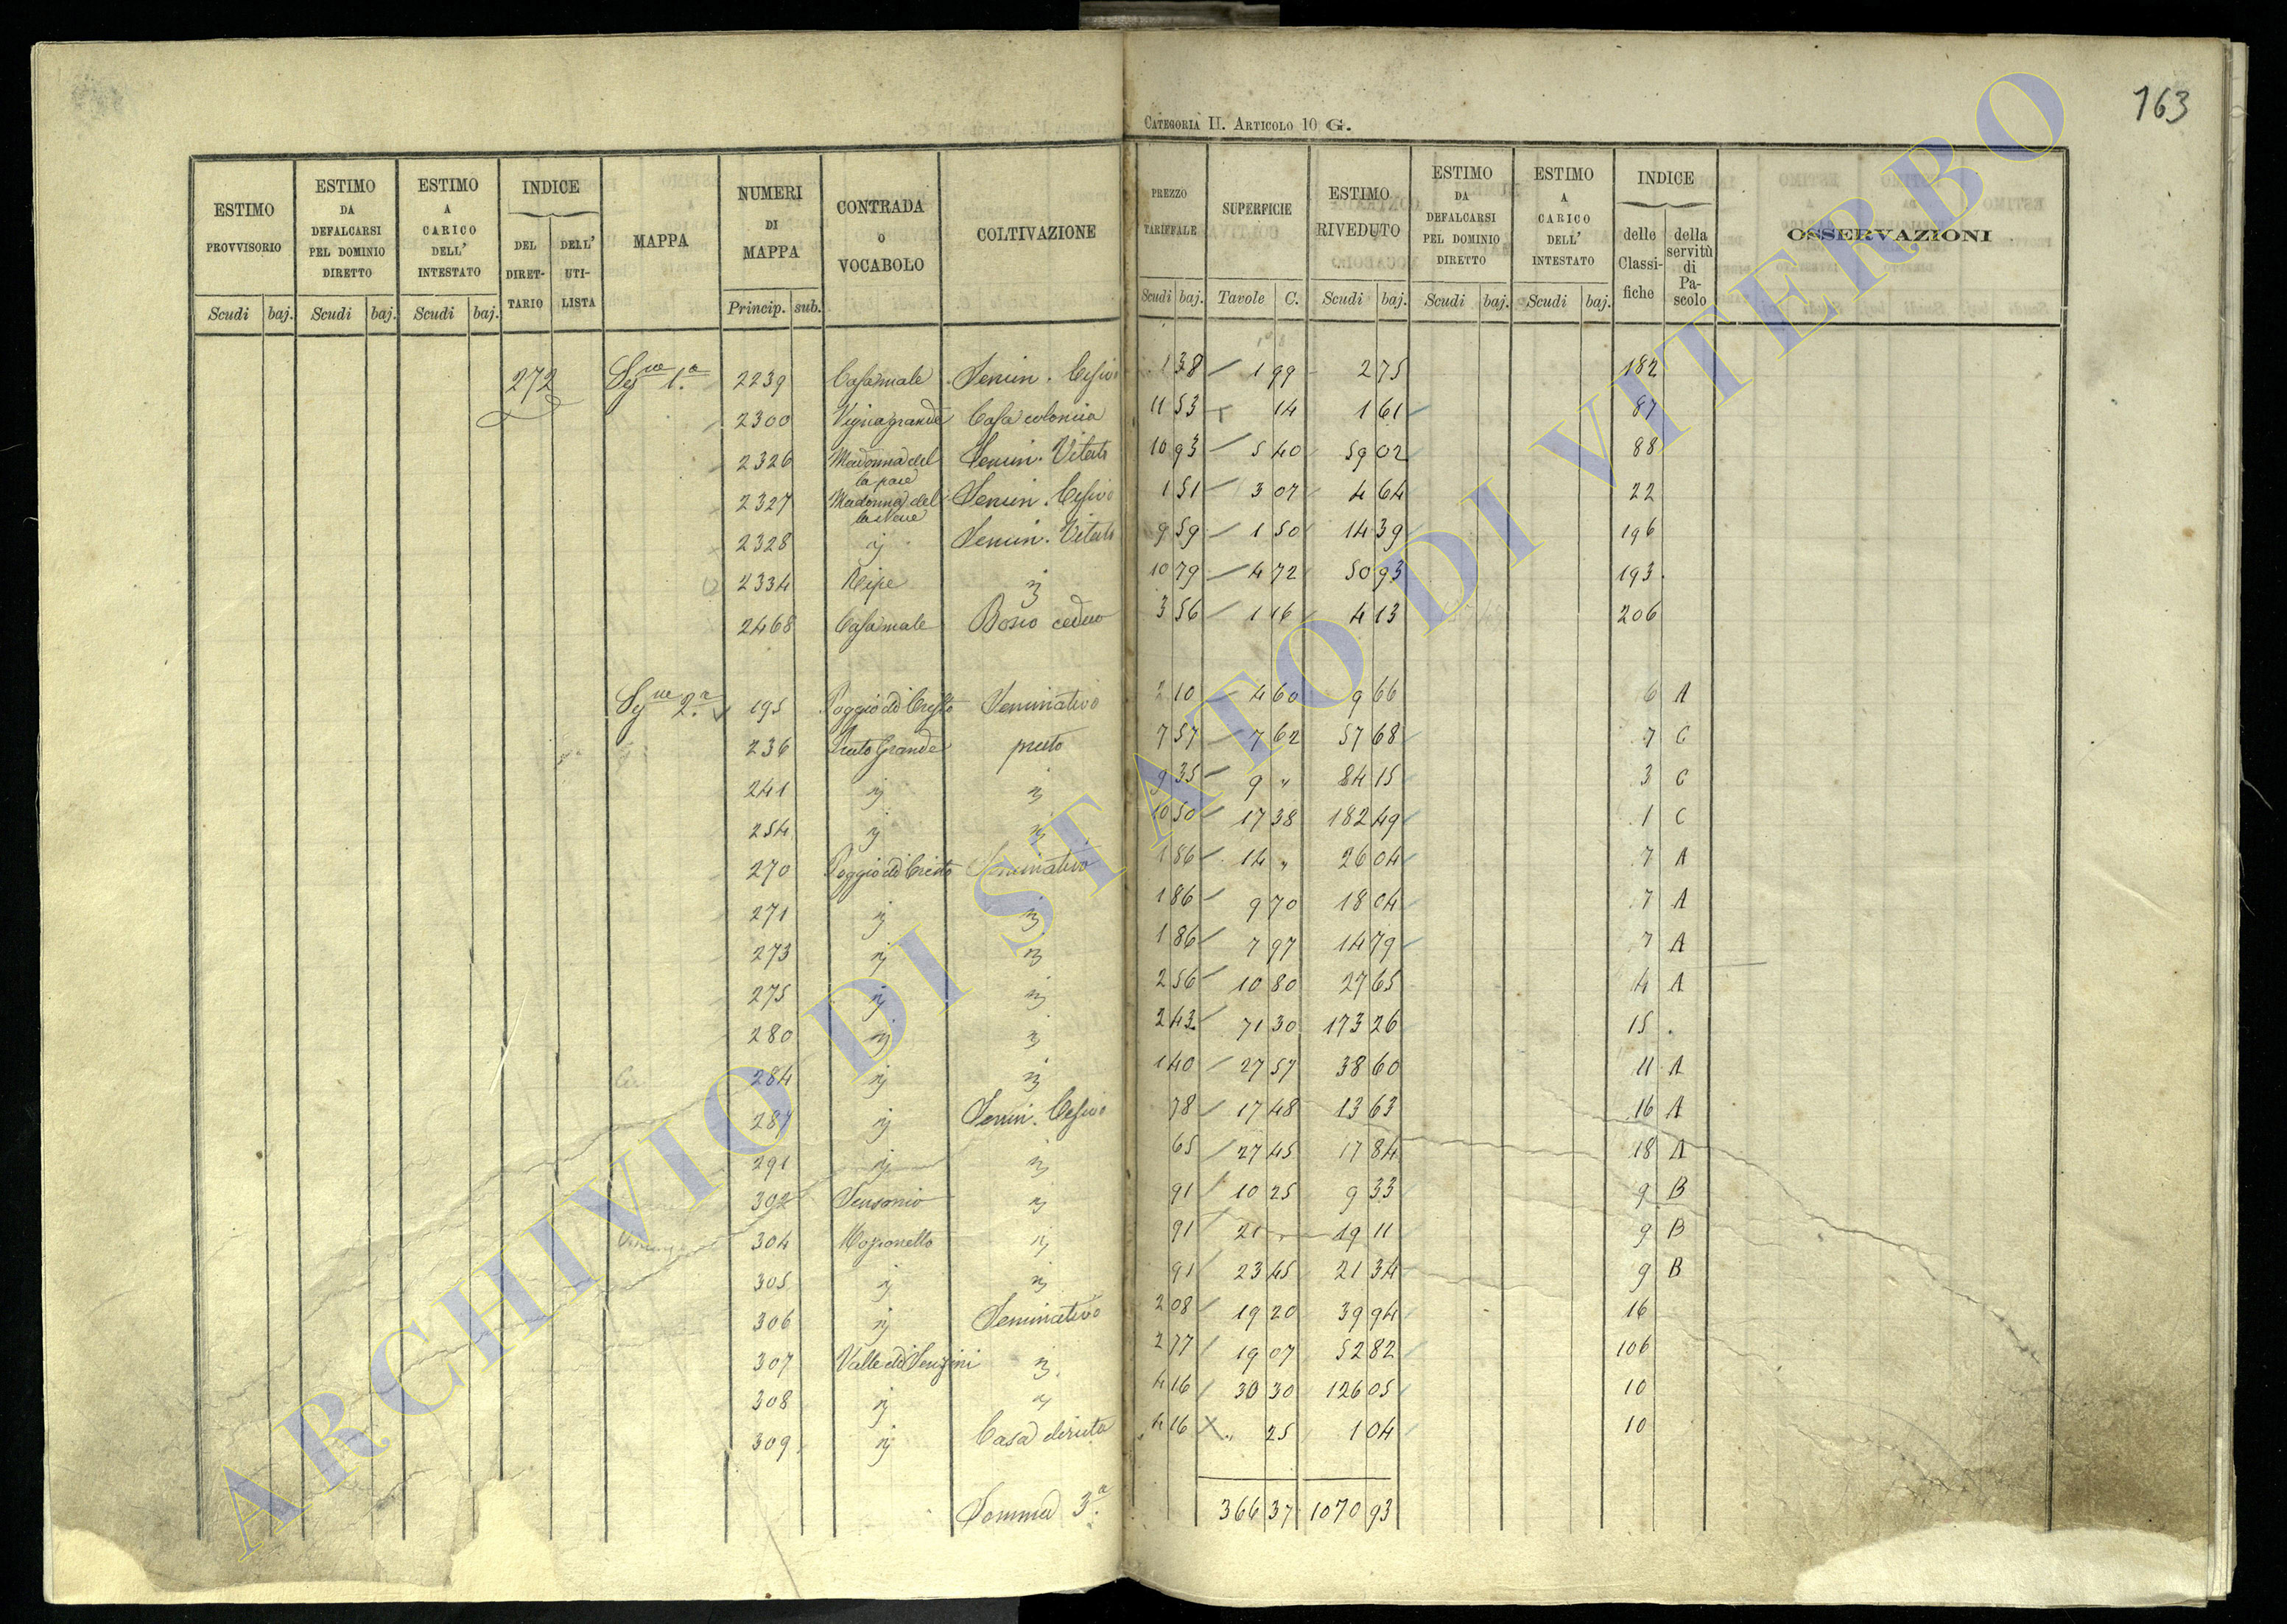 163
CATEGORIA II. ARTICOLO 10 G.
ESTIMO PROVVISORIO Scudi baj.
ESTIMO DA DEFALCARSI PEL DOMINIO DIRETTO Scudi baj.
ESTIMO A CARICO DELL' INTESTATO Scudi baj.
INDICE DEL DIRET-TARIO DELL' UTI-LISTA
MAPPA
NUMERI DI MAPPA Princip. sub.
CONTRADA O VOCABOLO
COLTIVAZIONE
PREZZO TARIFFALE Scudi baj.
SUPERFICIE Tavole C.
ESTIMO RIVEDUTO Scudi baj.
ESTIMO DA DEFALCARSI PEL DOMINIO DIRETTO Scudi baj.
ESTIMO A CARICO DELL' INTESTATO Scudi baj.
INDICE delle Classi-fiche della servitù di Pa-scolo
OSSERVAZIONI
272 Sez.ne 1.a 2239 Casamale Semin. Cesivo 1 38 1 99 2 75 182
2300 Vignagrande Casa colonica 11 53 14 1 61 87
2326 Madonna del Semin. Vitato 10 93 5 40 59 02 88
la pace
2327 Madonna del Semin. Cesivo 1 51 3 07 4 64 22
la Neve
2328 " Semin. Vitato 9 59 1 50 14 39 196
2334 Ripe " 10 79 4 72 50 93 193
2468 Casamale Bosco ceduo 3 56 1 16 4 13 206
Sez.ne 2.a 195 Poggio di Cristo Seminativo 2 10 4 60 9 66 6 A
236 Prato Grande prato 7 57 7 62 57 68 7 C
241 " " 9 35 9 " 84 15 3 C
254 " " 10 50 17 38 182 49 1 C
270 Poggio di Cristo Seminativo 1 86 14 " 26 04 7 A
271 " " 1 86 9 70 18 04 7 A
273 " " 1 86 7 97 14 79 7 A
275 " " 2 56 10 80 27 65 4 A
280 " " 2 43 71 30 173 26 15
284 " " 1 40 27 57 38 60 11 A
287 " Semin. Cesivo 78 17 48 13 63 16 A
291 " " 65 27 45 17 84 18 A
302 Sensonio " 91 10 25 9 33 9 B
304 " 91 21 " 19 11 9 B
305 " " 91 23 45 21 34 9 B
306 " Seminativo 2 08 19 20 39 94 16
307 Valle di " 2 77 19 07 52 82 106
308 " " 4 16 30 30 126 05 10
309 " Casa diruta 4 16 " 25 1 04 10
Somma 3.a 366 37 1070 93
ARCHIVIO DI STATO DI VITERBO